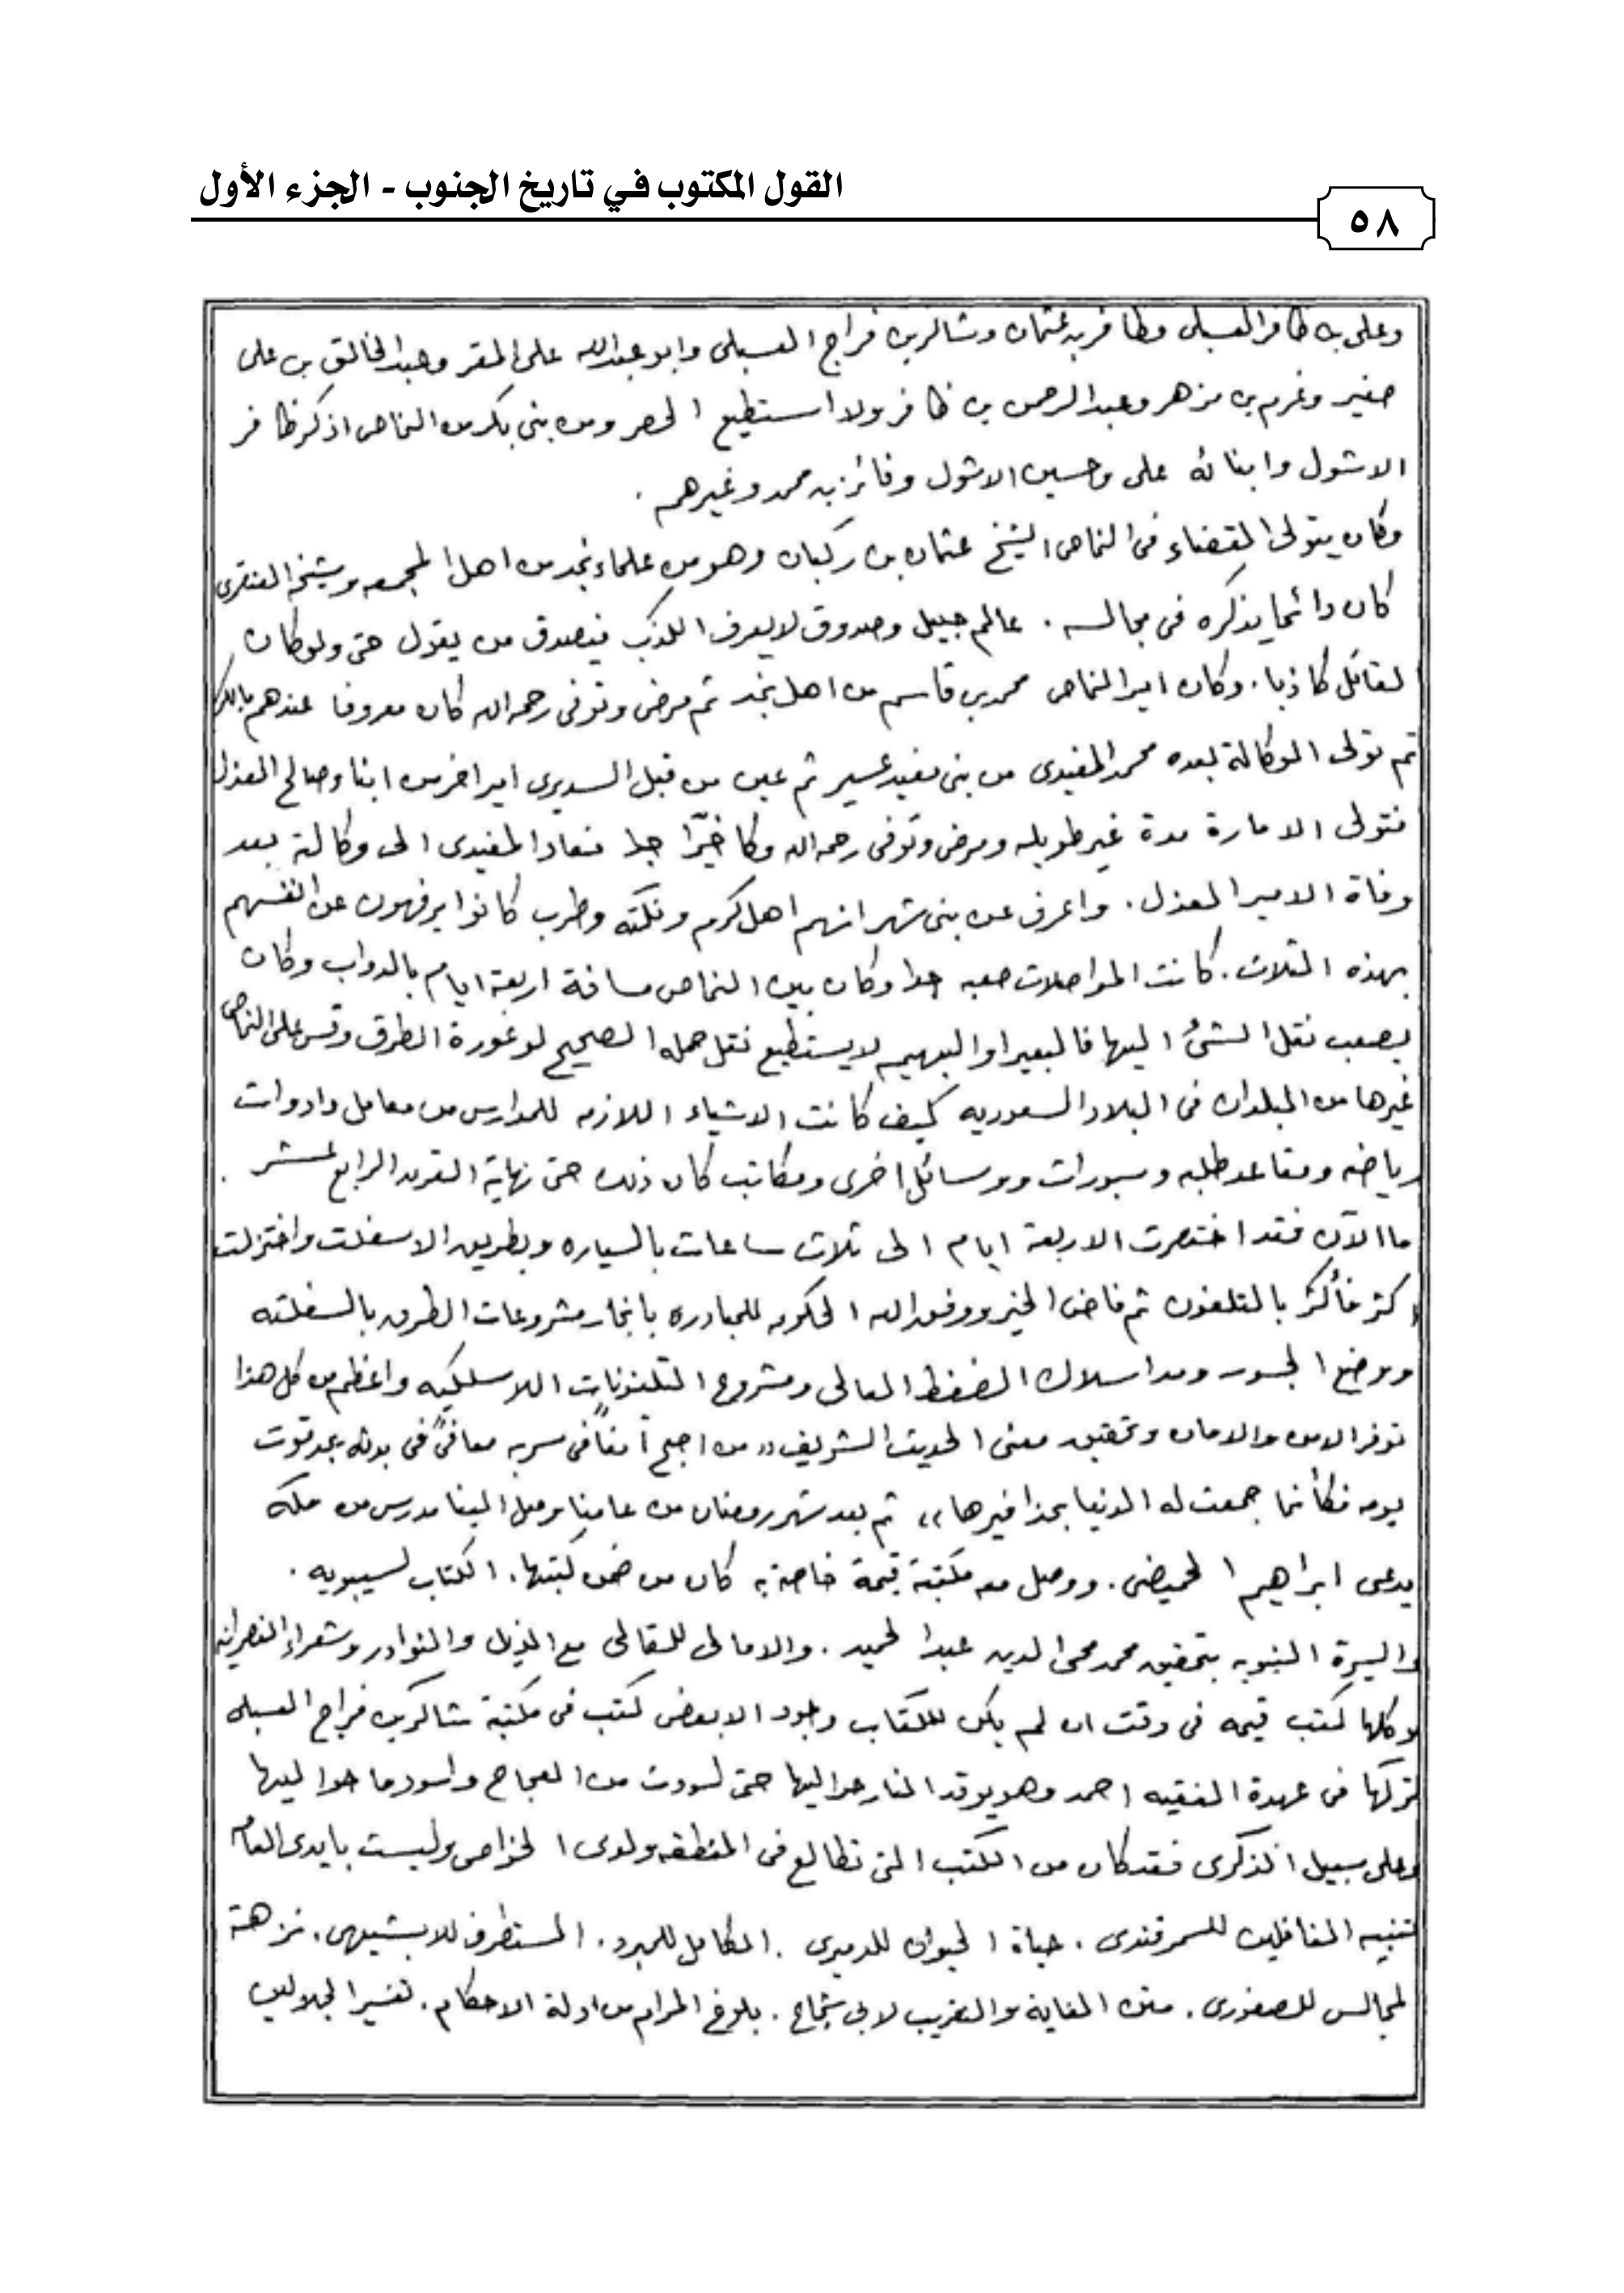 القول المكتوب في تاريخ الجنوب - الجزء الأول
٥٨
وعلى بن ظافر العسبلى وظافر بن عثمان وشاكر بن فراج العسبلى وابو عبدالله على المقر وعبدالخالق بن على
صغير وغرم بن مزهر وعبدالرحمن بن ظافر ولا استطيع الحصر ومن بنى بكر من النماص اذكر ظافر
الاشول وابنائه على وحسين الاشول وفائز بن محمد وغيرهم .
وكان يتولى القضاء فى النماص الشيخ عثمان بن ركبان وهو من علماء نجد من اهل المجمعه وشيخه العنقرى
كان دائما يذكره فى مجالسه . عالم جليل وصدوق لا يعرف الكذب فيصدق من يقول حتى ولو كان
القائل كاذبا . وكان امير النماص محمد بن قاسم من اهل نجد ثم مرض وتوفى رحمه الله كان معروفا عندهم
ثم تولى الوكالة بعده محمد المفيدى من بنى مفيد عسير ثم عين من قبل السديرى امير اخر من ابناء صالح العذل
فتولى الامارة مدة غير طويله ومرض وتوفى رحمه الله وكا خيّرا جدا فعاد المفيدى الى وكالته بعد
وفاة الامير العذل . واعرف عن بنى شهر انهم اهل كرم ونكته وطرب كانوا يرفهون عن انفسهم
بهذه الثلاث . كانت المواصلات صعبه جدا وكان بين النماص مسافة اربعة ايام بالدواب وكان
يصعب نقل الشئ اليها فالبعير او البهيم لا يستطيع نقل حمله الصحيح لوعورة الطرق وقس على النماص
غيرها من البلدان فى البلاد السعوديه كيف كانت الاشياء اللازمه للمدارس من معامل وادوات
رياضه ومقاعد طلبه وسبورات ووسائل اخرى ومكاتب كان ذلك حتى نهاية القرن الرابع عشر .
اما الآن فقد اختصرت الاربعة ايام الى ثلاث ساعات بالسياره وبطريق الاسفلت واختزلت
اكثر فأكثر بالتلفون ثم فاض الخير ووفق الله الحكومه للمبادره بانجاز مشروعات الطرق بالسفلته
ووضع الجسور ومد اسلاك الضغط العالى ومشروع التلفونات اللاسلكيه واعظم من كل هذا
توفر الامن والامان وتحقيق معنى الحديث الشريف (( من اصبح آمنا فى سربه معافىً فى بدنه يجد قوت
يومه فكأنما جمعت له الدنيا بحذافيرها )) ثم بعد شهر رمضان من عامنا وصل الينا مدرس من مكه
يدعى ابراهيم الحميضى . ووصل معه مكتبة قيمة خاصة به كان من ضمن كتبها . الكتاب لسيبويه .
والسيرة النبويه بتحقيق محمد محى الدين عبدالحميد . والامالى للقالى مع الذيل والنوادر وشعراء النصرانيه
وكلها كتب قيمه فى وقت ان لم يكن للكتاب وجود الا بعض كتب فى مكتبة شاكر بن فراج العسبلى
تركها فى عهدة الفقيه احمد وهو يوقد النار حواليها حتى اسودت من العجاج واسود ما حواليها
وعلى سبيل الذكرى فقد كان من الكتب التى تطالع فى المنطقه ولدى الخواص وليست بايدى العام
تنبيه الغافلين للسمرقندى . حياة الحيوان للدميرى . الكامل للمبرد . المستطرف للابشيهى . نزهة
المجالس للصفورى . متن الغاية والتقريب لابى شجاع . بلوغ المرام من ادلة الاحكام . تفسير الجلالين